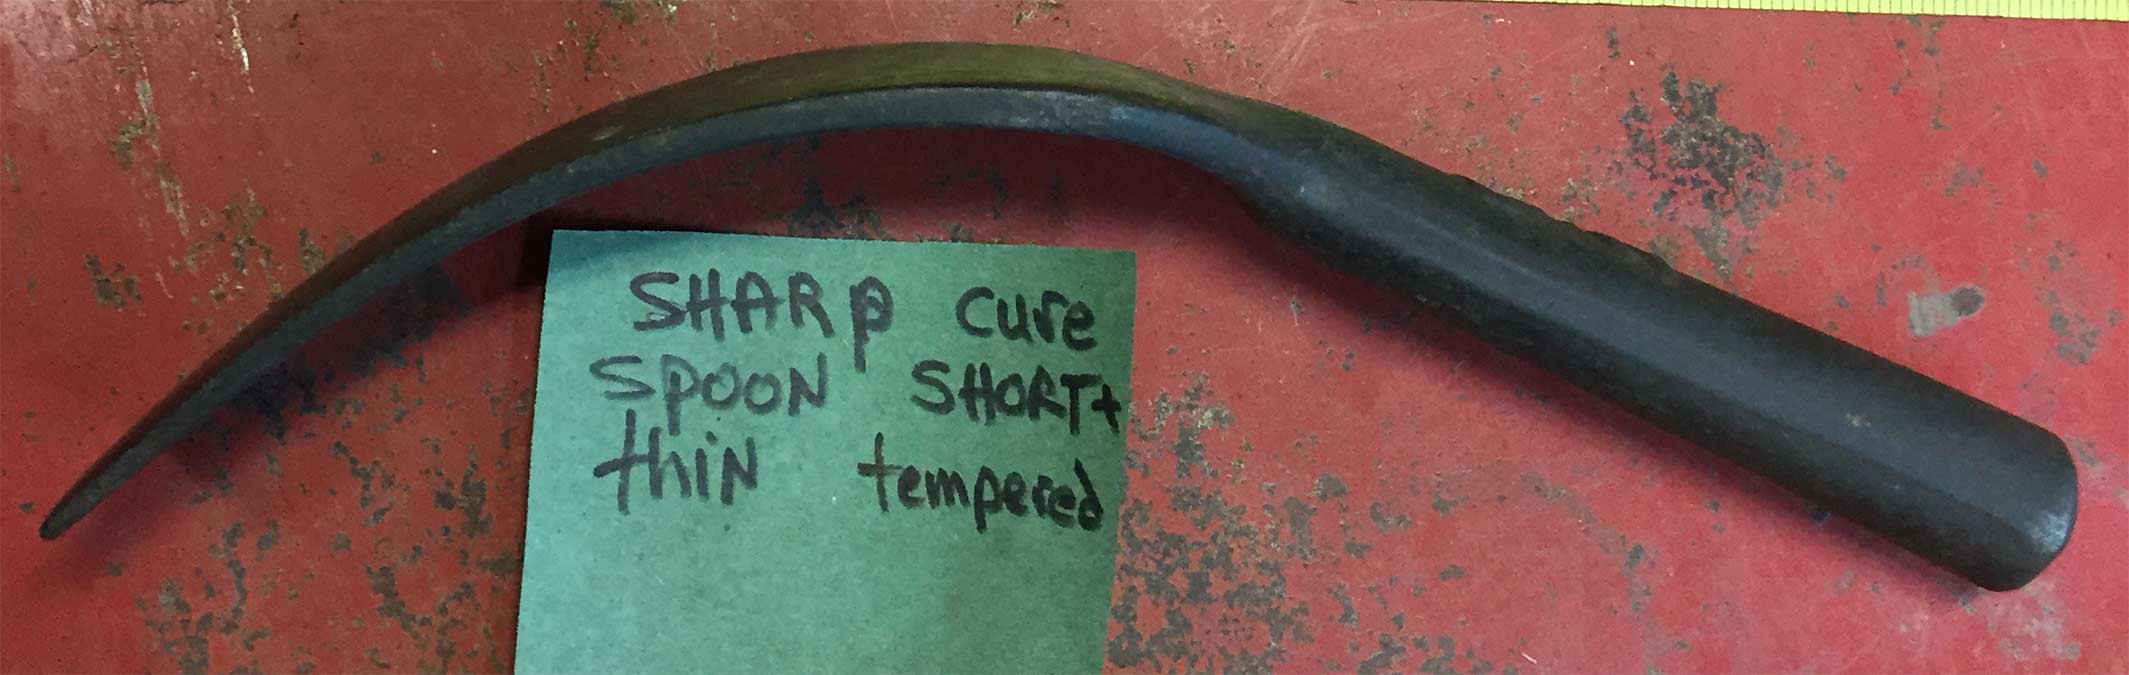 SHARp cure
SpOON SHORT+
thiN tempered